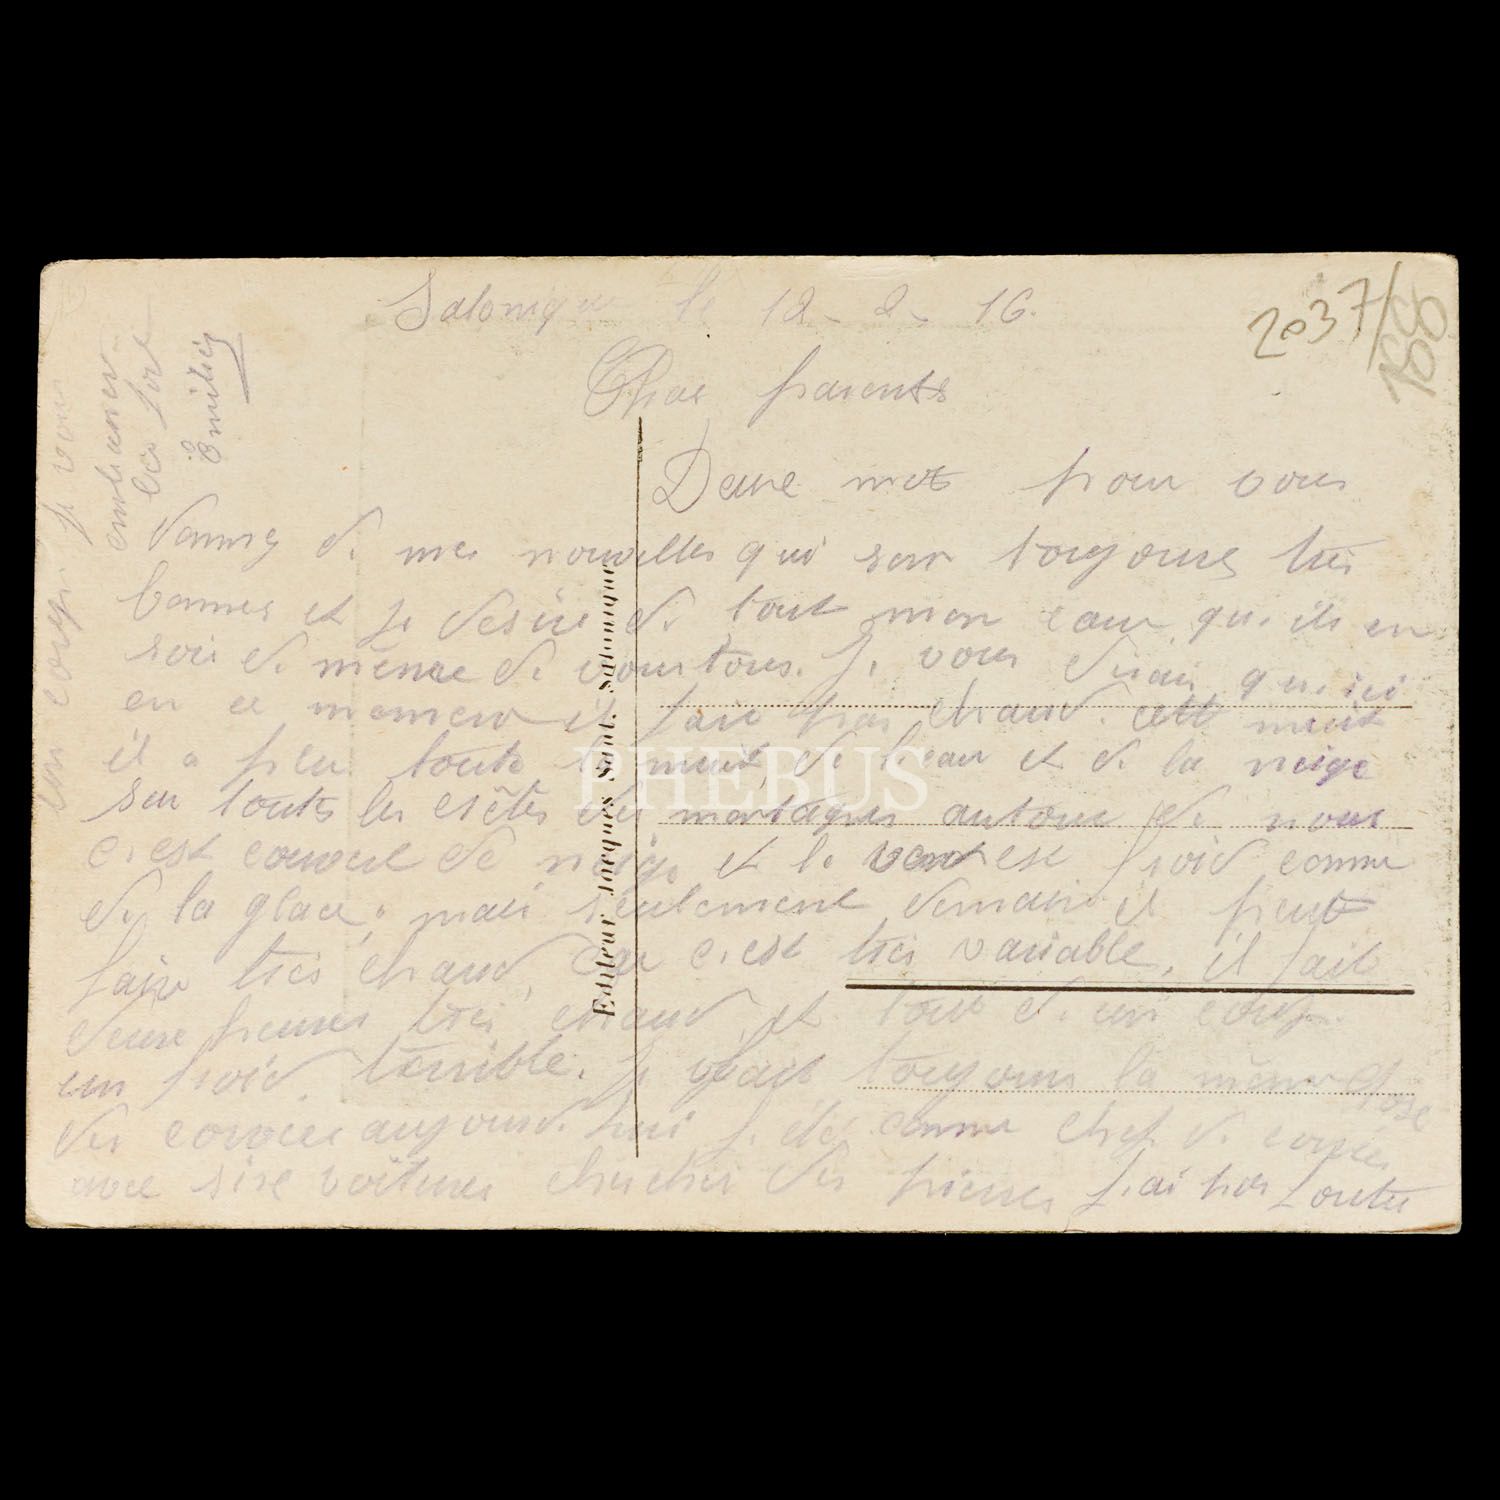 Salonique le 12-2-16.
2037/
166
Cher parents
Deux mots pour vous
donner de mes nouvelles qui son toujours très
bonnes et je désire de tout mon cœur qu'ils en
soit de même de vous tous. Je vous dirai qu'ici
en ce moment il fait pas chaud. cette nuit
il a plu toute la nuit de l'eau et de la neige
sur toutes les crêtes des montagnes autour de nous
c'est couvert de neige et le vent est froid comme
de la glace, mais seulement demain il peut
faire très chaud, car c'est très variable, il fait
deux heures très chaud et tout d'un coup
un froid terrible. Je fait toujours la même chose
des corvées aujourd'hui j'été comme chef de corvée
avec six voitures chercher des pierres j'ai pas
un coup je vous
embrasser
Émilien
Editeur Jacques Saul, Salonique
PHEBUS